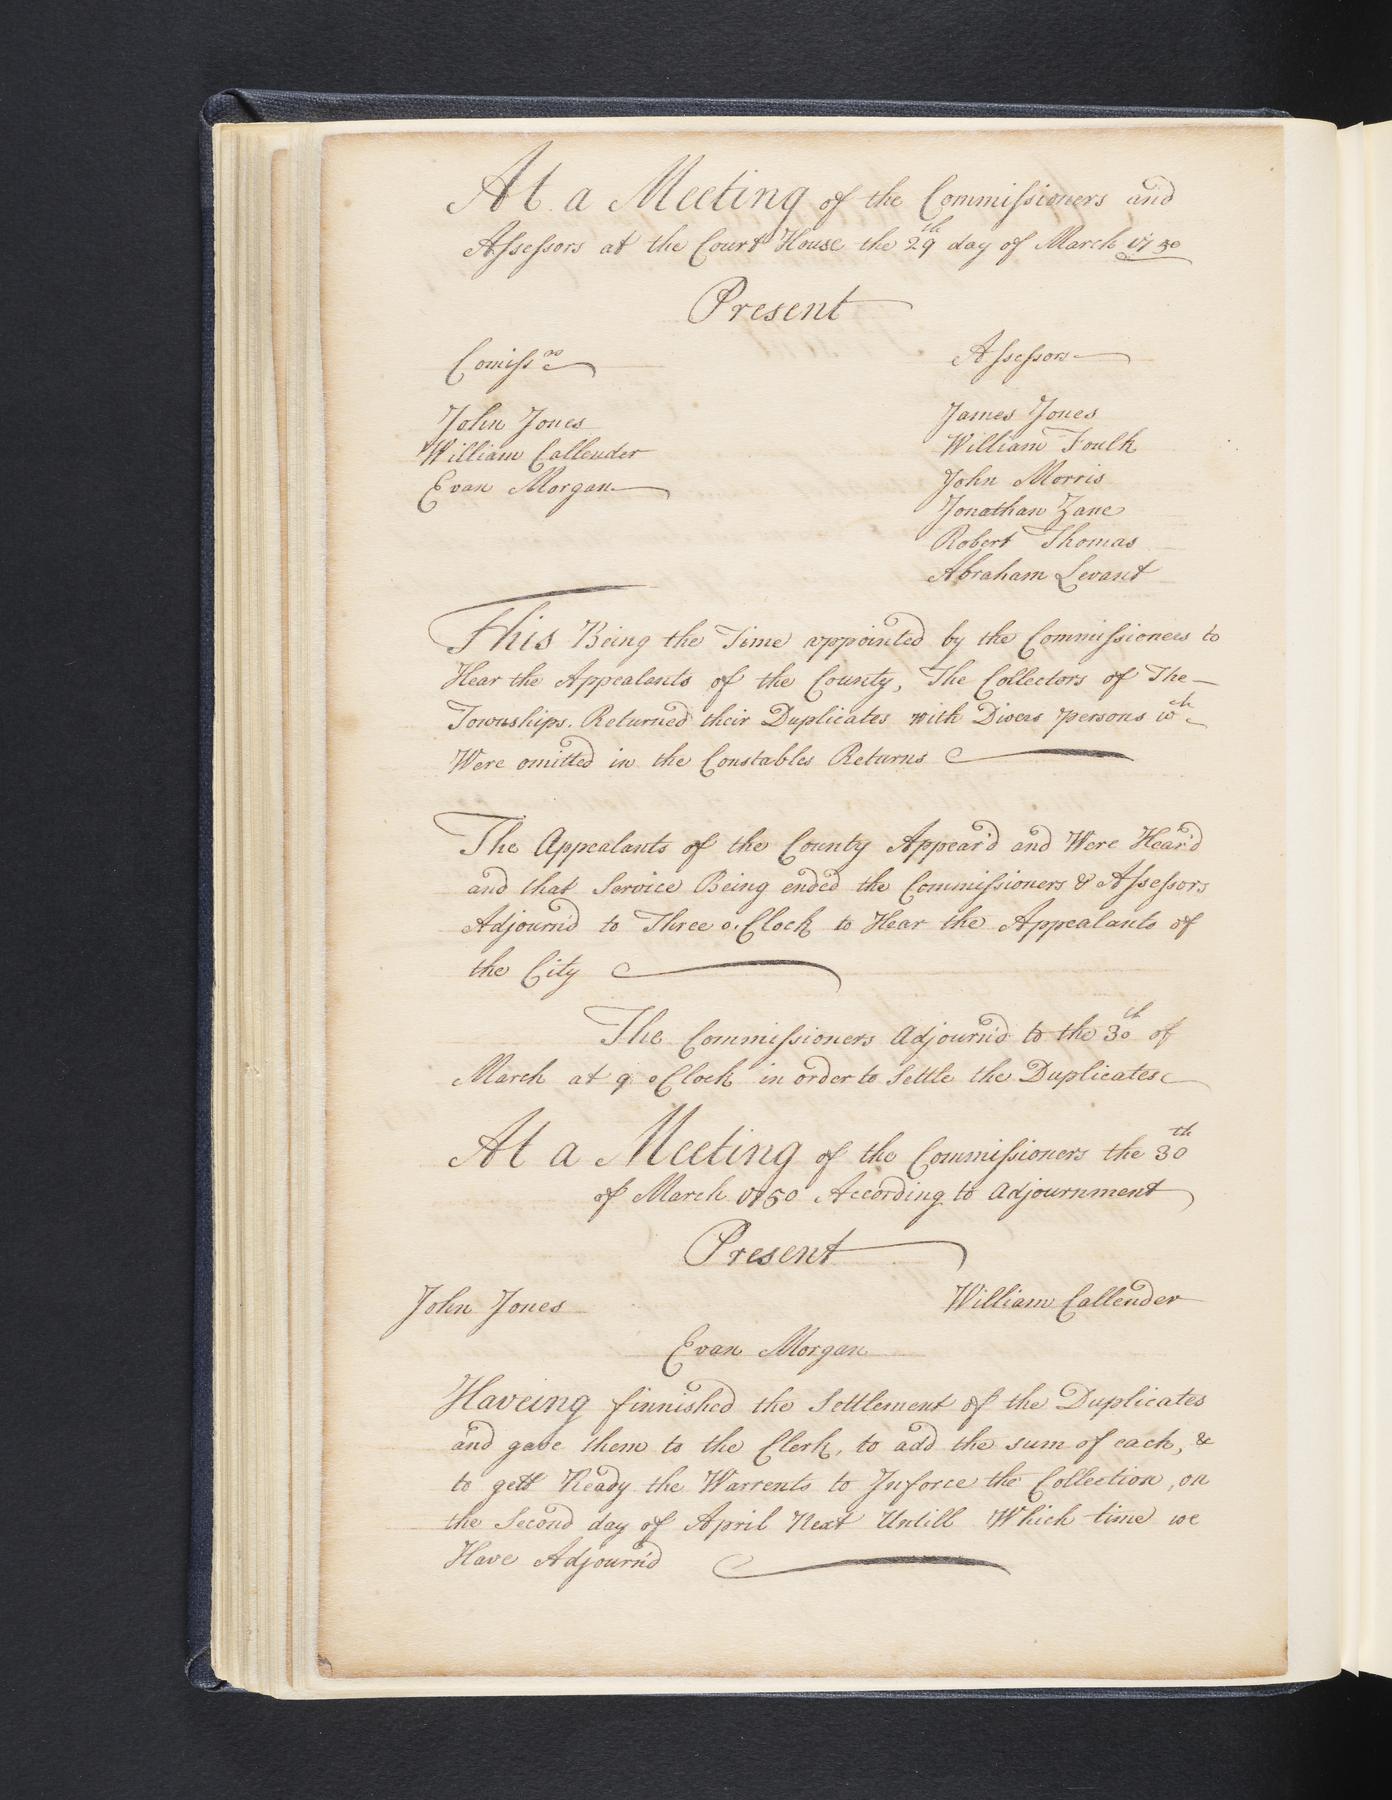 At a Meeting of the Commissioners and
Assessors at the Court House the 29th day of March 1750
Present
Comissrs
Assessors
John Jones
William Callender
Evan Morgan
James Jones
William Foulk
John Morris
Jonathan Zane
Robert Thomas
Abraham Levant
This Being the Time appointed by the Commissioners to
Hear the Appealants of the County, The Collectors of The
Townships Returned their Duplicates with Divers persons wch
Were omitted in the Constables Returns
The Appealants of the County Appear'd and Were Hear'd
and that Service Being ended the Commissioners & Assessors
Adjourn'd to Three o.Clock to Hear the Appealants of
the City
The Commissioners Adjourn'd to the 30th of
March at 9 oClock in order to Settle the Duplicates
At a Meeting of the Commissioners the 30th
of March 1750 According to Adjournment
Present
John Jones
William Callender
Evan Morgan
Haveing finnished the Settlement of the Duplicates
and gave them to the Clerk, to add the sum of each, &
to gett Ready the Warrents to Inforce the Collection, on
the Second day of April Next Untill Which time we
Have Adjourn'd